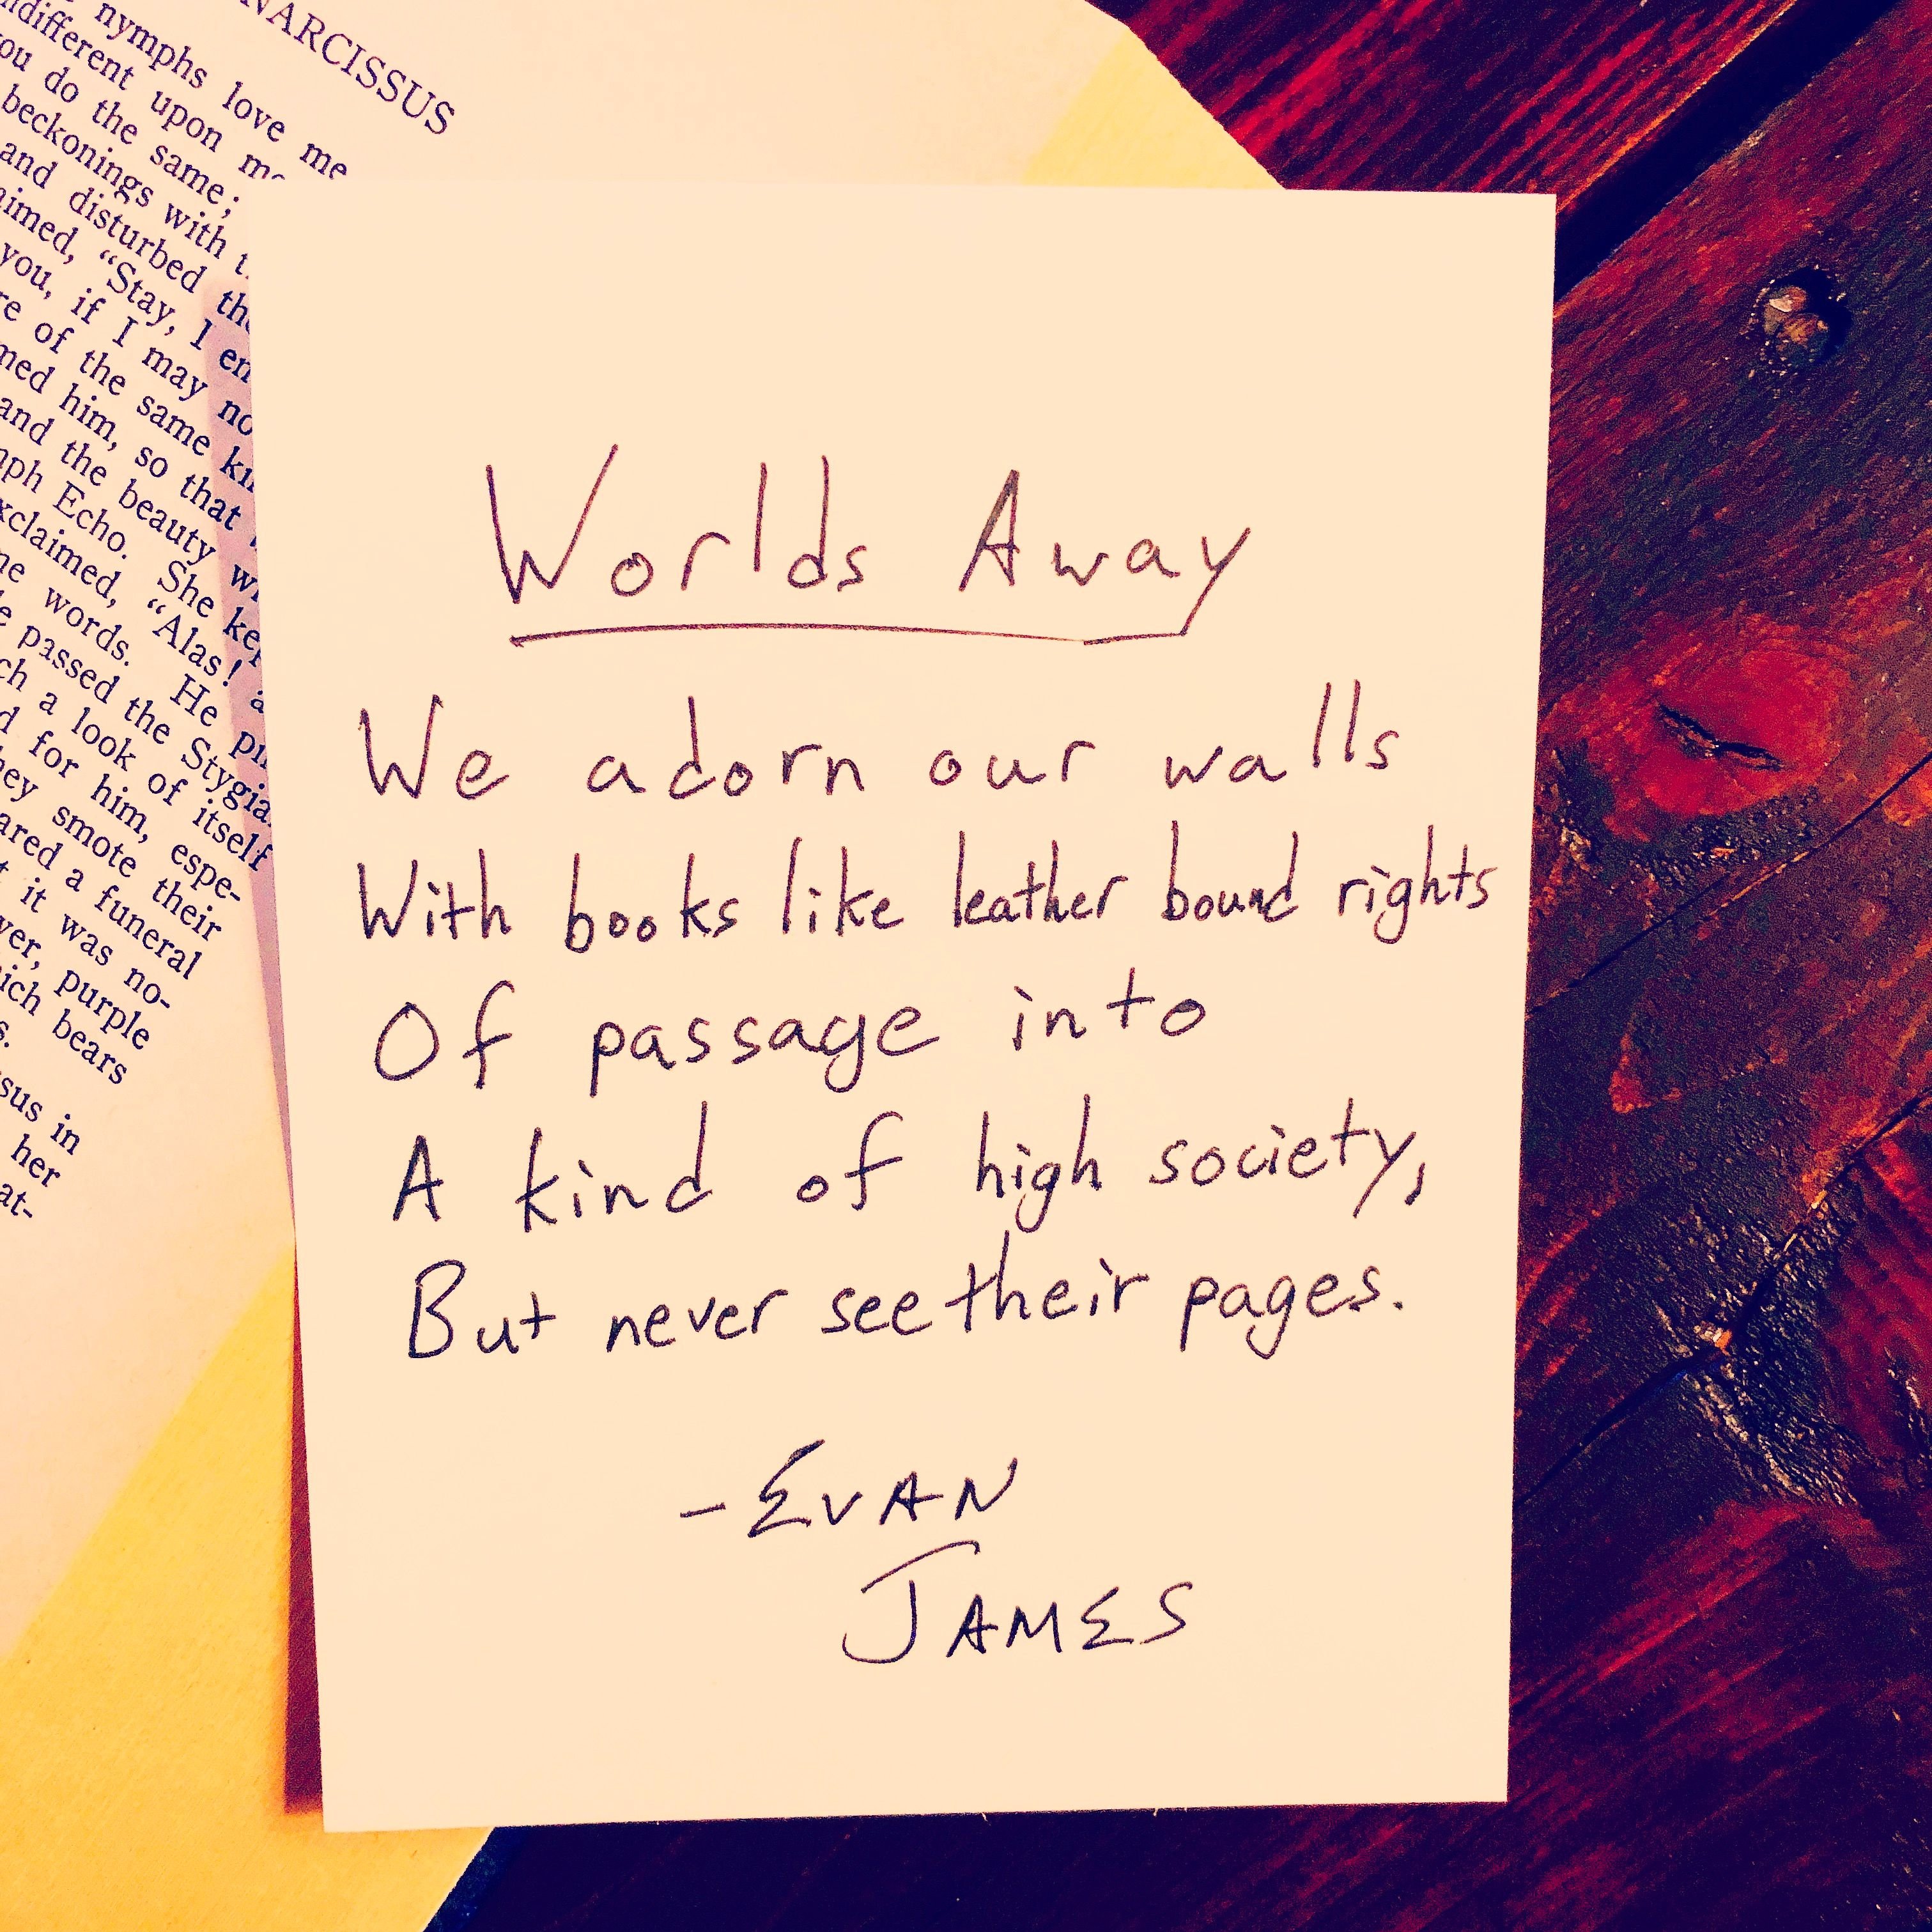 NARCISSUS
nymphs love me
indifferent upon
you do the same;
beckonings with
and disturbed
"Stay, I
you, if I may
of the same
him, so that
and the beauty
Echo. She
"Alas!
words. He
passed the
a look of itself
for him, espe-
they smote their
a funeral
it was no-
purple
bears
in
her
at-
Worlds Away
We adorn our walls
With books like leather bound rights
Of passage into
A kind of high society,
But never see their pages.
-EVAN
JAMES